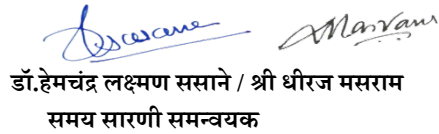 डॉ.हेमचंद्र लक्ष्मण ससाने / श्री धीरज मसराम
समय सारणी समन्वयक